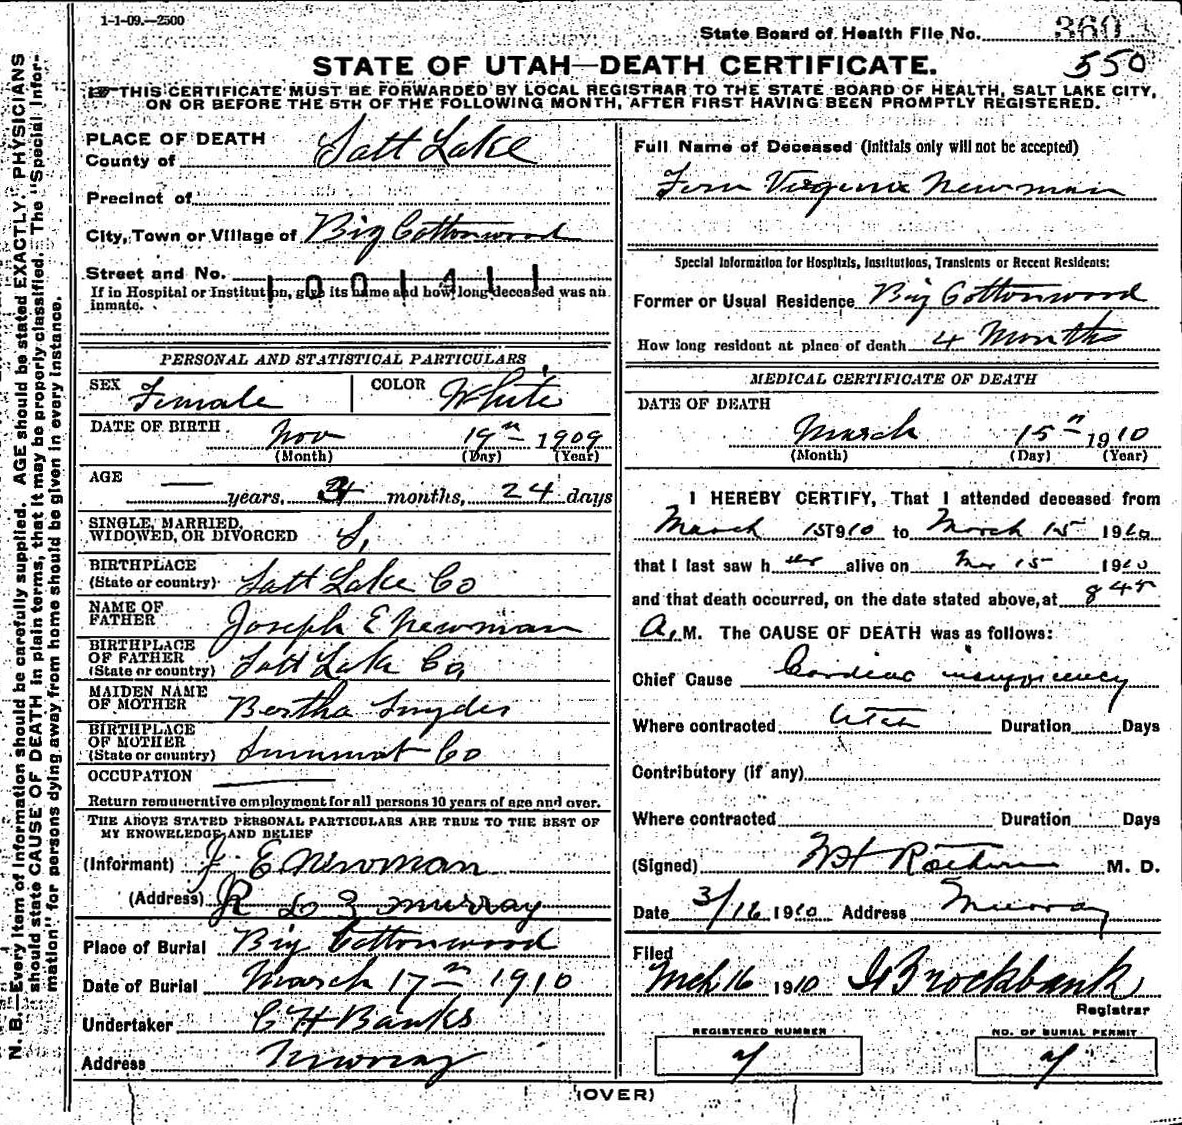 1-1-09.—2500
State Board of Health File No. 360
550
STATE OF UTAH—DEATH CERTIFICATE.
THIS CERTIFICATE MUST BE FORWARDED BY LOCAL REGISTRAR TO THE STATE BOARD OF HEALTH, SALT LAKE CITY,
ON OR BEFORE THE 5TH OF THE FOLLOWING MONTH, AFTER FIRST HAVING BEEN PROMPTLY REGISTERED.
N. B.—Every item of information should be carefully supplied. AGE should be stated EXACTLY. PHYSICIANS
should state CAUSE OF DEATH in plain terms, that it may be properly classified. The "Special Infor-
mation" for persons dying away from home should be given in every instance.
PLACE OF DEATH
County of Salt Lake
Precinct of
City, Town or Village of Big Cottonwood
Street and No.
1001411
If in Hospital or Institution, give its name and how long deceased was an
inmate.
PERSONAL AND STATISTICAL PARTICULARS
SEX Female COLOR White
DATE OF BIRTH Nov 19th 1909
(Month) (Day) (Year)
AGE
— years, 3 months, 24 days
SINGLE, MARRIED,
WIDOWED, OR DIVORCED S.
BIRTHPLACE
(State or country) Salt Lake Co
NAME OF
FATHER Joseph E Newman
BIRTHPLACE
OF FATHER
(State or country) Salt Lake Co,
MAIDEN NAME
OF MOTHER Bertha Snyder
BIRTHPLACE
OF MOTHER
(State or country) Summat Co
OCCUPATION
Return remunerative employment for all persons 10 years of age and over.
THE ABOVE STATED PERSONAL PARTICULARS ARE TRUE TO THE BEST OF
MY KNOWELEDGE AND BELIEF
(Informant) J. E Newman
(Address) R 3 Murray
Place of Burial Big Cottonwood
Date of Burial March 17th 1910
Undertaker C H Banks
Address Murray
Full Name of Deceased (Initials only will not be accepted)
Fern Virginia Newman
Special Information for Hospitals, Institutions, Transients or Recent Residents:
Former or Usual Residence Big Cottonwood
How long resident at place of death 4 Months
MEDICAL CERTIFICATE OF DEATH
DATE OF DEATH
March 15th 1910
(Month) (Day) (Year)
I HEREBY CERTIFY, That I attended deceased from
March 1ST 1910 to March 15 1910
that I last saw her alive on Mar 15 1910
and that death occurred, on the date stated above, at 8 45
A. M. The CAUSE OF DEATH was as follows:
Chief Cause Cardiac insufficiency
Where contracted Utah Duration Days
Contributory (if any)
Where contracted Duration Days
(Signed) M. D.
Date 3/16 1910 Address Murray
Filed
Mch 16 1910 Brockbank
Registrar
REGISTERED NUMBER NO. OF BURIAL PERMIT
(OVER)